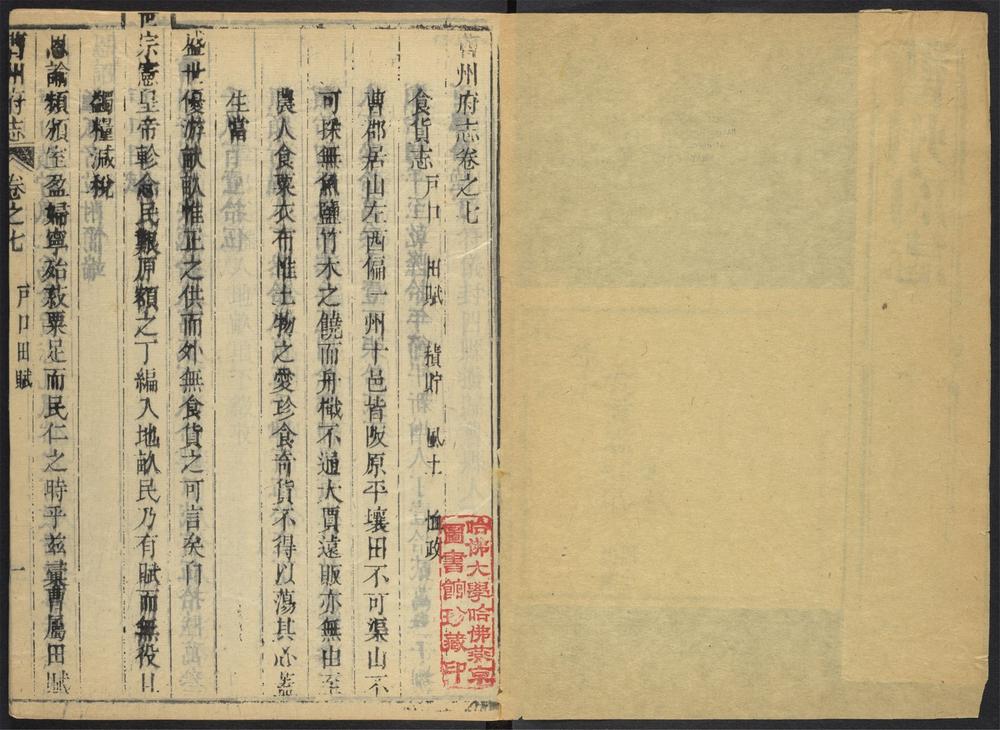 曹州府志卷之七
食貨志 戶口 田賦 積貯 風土 恤政
曹郡居山左西偏一州十邑皆阪原平壤田不可渠山不
可採無魚鹽竹木之饒而舟檝不通大賈遠販亦無由至
農人食粟衣布惟土物之愛珍食奇貨不得以蕩其心蓋
生當
盛世優游畎畝惟正之供而外無食貨之可言矣自
世宗憲皇帝軫念民艱原額之丁編入地畝民乃有賦而無役且
蠲糧減稅
恩諭頻頒室盈婦寧殆菽粟足而民仁之時乎茲彙曹屬田賦
曹州府志 卷之七 戶口田賦 一
哈佛大學哈佛燕京
圖書館珍藏印